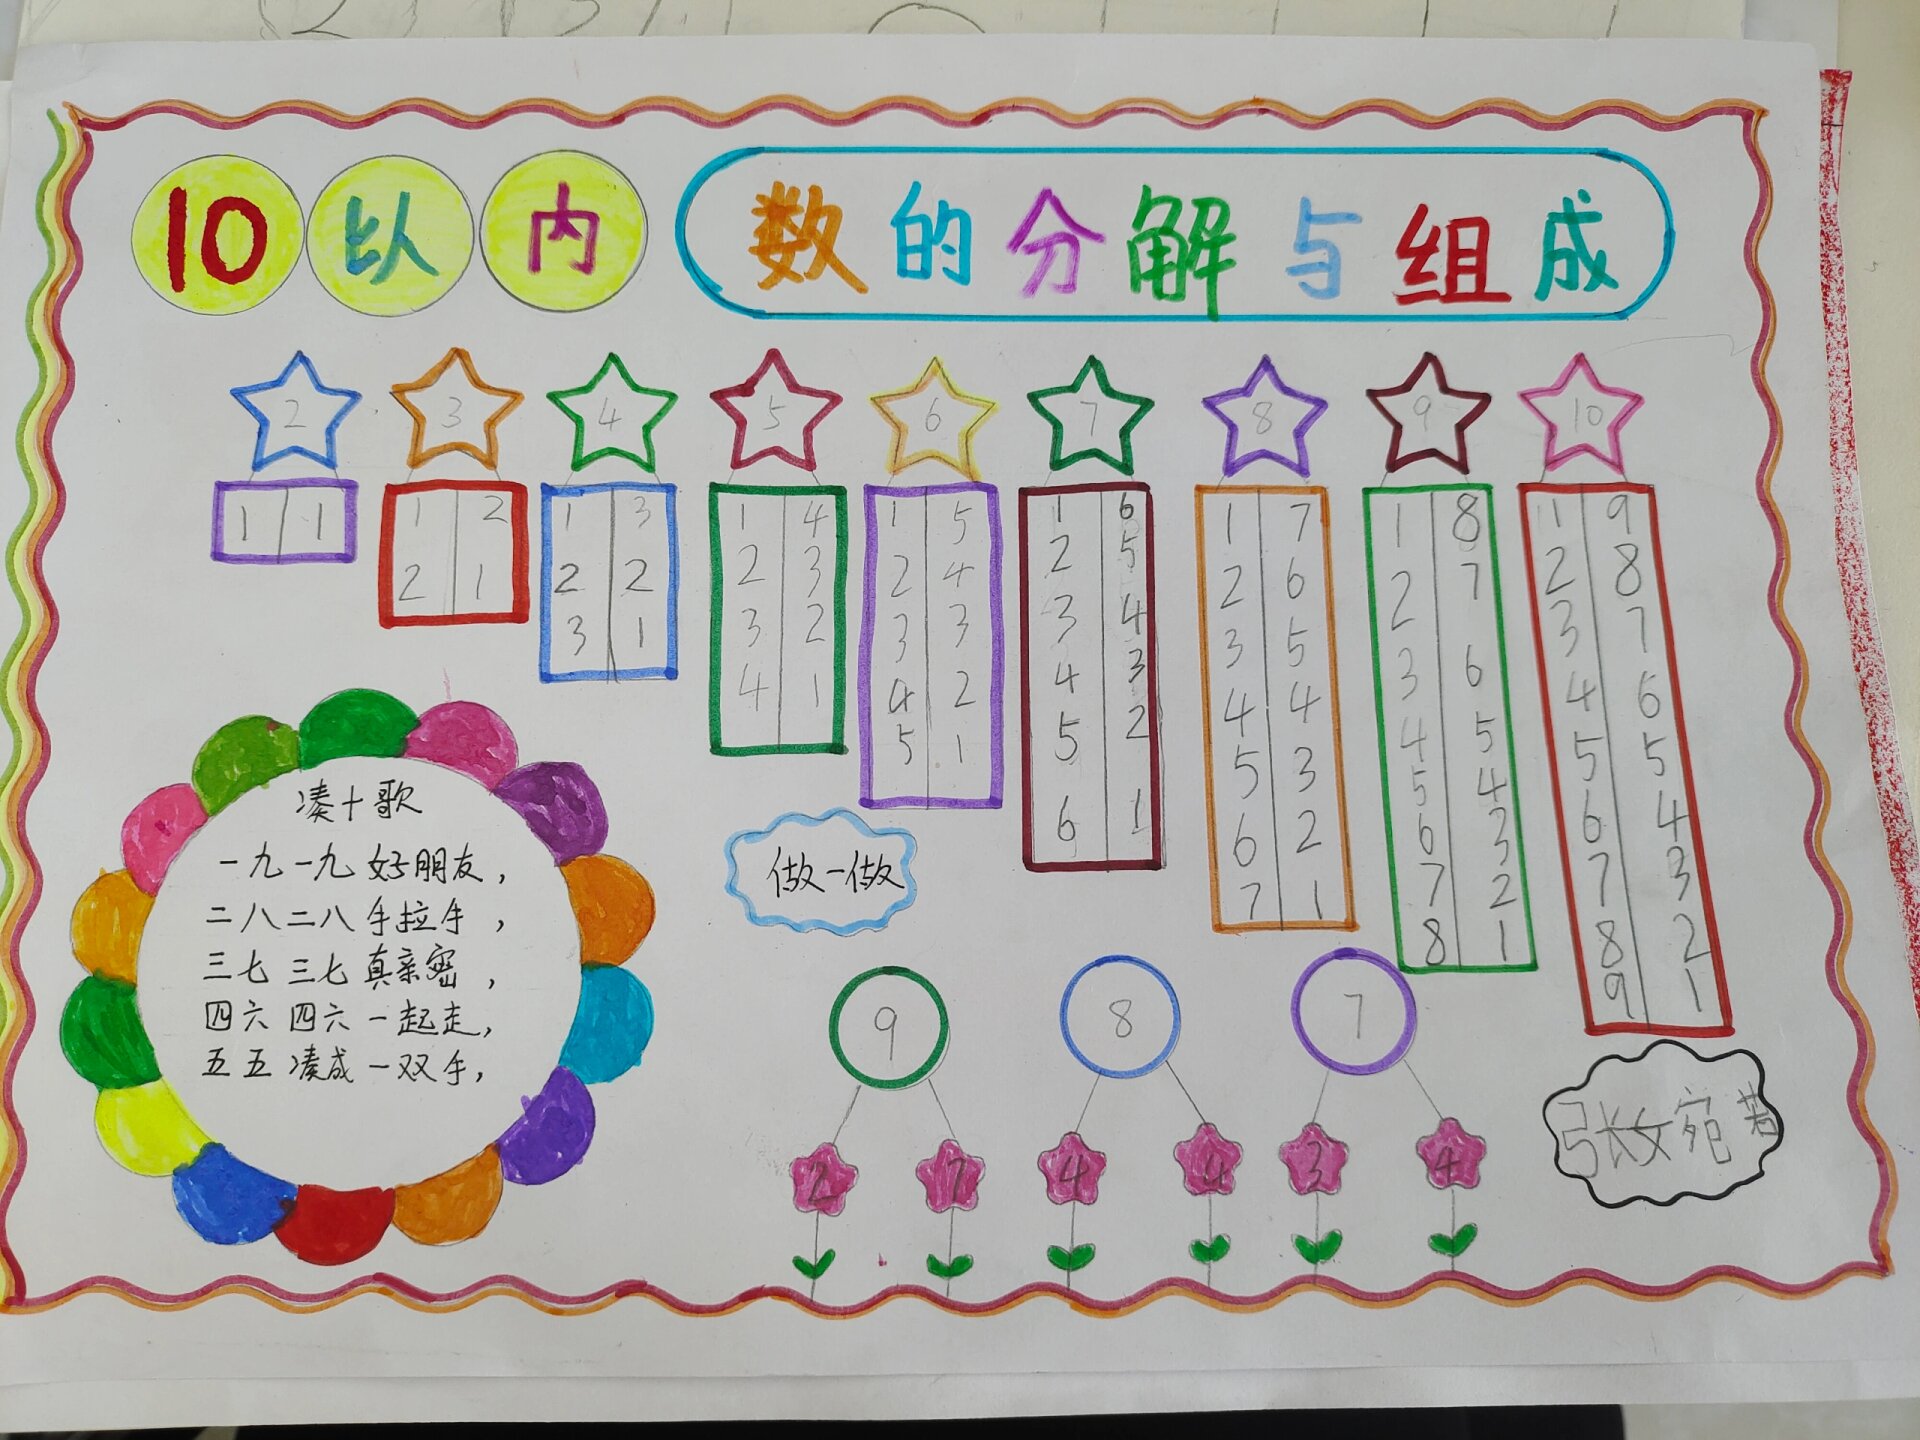 10以内 数的分解与组成
2 3 4 5 6 7 8 9 10
1 1
1 2
2 1
1 3
2 2
3 1
1 4
2 3
3 2
4 1
1 5
2 4
3 3
4 2
5 1
1 6
2 5
3 4
4 3
5 2
6 1
1 7
2 6
3 5
4 4
5 3
6 2
7 1
1 8
2 7
3 6
4 5
5 4
6 3
7 2
8 1
1 9
2 8
3 7
4 6
5 5
6 4
7 3
8 2
9 1
凑十歌
一九一九好朋友，
二八二八手拉手，
三七三七真亲密，
四六四六一起走，
五五凑成一双手，
做一做
9 8 7
2 7 4 4 3 4
张文宛若